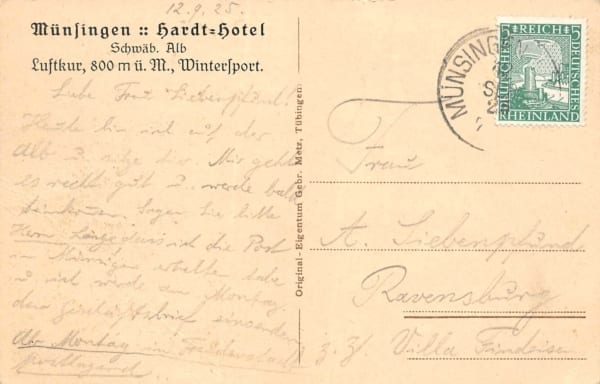 12.9.25.
Münsingen :: Hardt=Hotel
Schwäb. Alb
Luftkur, 800 m ü. M., Wintersport.
Liebe Frau Siebenpfund!
Heute bin ich auf der
Alb u. Mir geht
es recht gut u. werde bald
Sagen Sie bitte
Herrn dass ich die Post
in erhalten habe
u. ich werde am Montag
den Geschäftsbrief einsenden
Ab Montag in Freudenstadt
postlagernd
Original-Eigentum Gebr. Metz, Tübingen.
MÜNSINGEN
5 REICH 5
DEUTSCHES
RHEINLAND
Frau
A. Siebenpfund
Ravensburg
z. Zt. Villa Findeisen